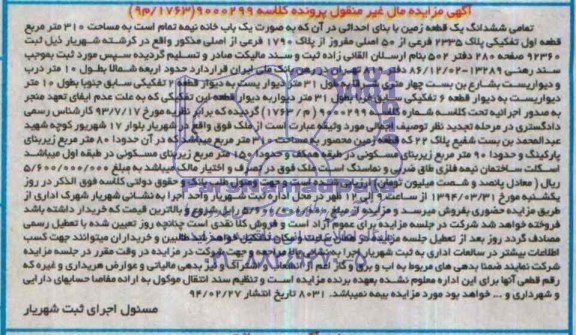 آگهی مزایده مال غیر منقول پرونده کلاسه ۹۰۰۰۲۹۹(۱۷۶۳/م۹)
تمامی ششدانگ یک قطعه زمین با بنای احداثی در آن که به صورت یک باب خانه نیمه تمام است به مساحت ۳۱۰ متر مربع
قطعه اول تفکیکی پلاک ۲۳۳۵ فرعی از ۵۰ اصلی مفروز از پلاک ۱۷۹۰ فرعی از اصلی مذکور واقع در کرشته شهریار ذیل ثبت
۹۲۳۶۰ صفحه ۲۸۰ دفتر ۵۰۲ بنام ارسلان القائی زاده ثبت و سند مالیکت صادر و تسلیم گردیده سپس مورد ثبت بموجب
سند رهنی ۱۳۲۸۹-۸۶/۱۲/۰۲ دفتر بانک ملی ایران قرار دارد حدود اربعه شمالا بطول ۱۰ متر درب
و دیواریست بشارع بن بست چهار متری شرقا بطول ۳۱ متر دیوار پست به دیوار قطعه ۲ تفکیکی سابق جنوبا بطول ۱۰ متر
دیواریست به دیوار قطعه ۶ تفکیکی سابق غربا بطول ۳۱ متر دیوار به دیوار قطعه این تفکیکی که به علت عدم ایفای تعهد منجر
به صدور اجرائیه تحت کلاسه شماره ۹۰۰۰۲۹۹ (م/۱۷۶۳) گردیده که برابر نظریه مورخ ۹۳/۷/۱۷ کارشناس رسمی
دادگستری در مرحله تجدید نظر توصیف اجمالی مورد وثیقه عبارت است از ملک فوق واقع در شهریار بلوار ۱۷ شهریور کوچه شهید
عبدالمحمد بن بست شفیع پلاک ۲۲ که قطعه زمین محصور به مساحت ۳۱۰ متر مربع میباشد که در آن حدودا ۸۰ متر مربع زیربنای
پارکینگ و حدودا ۹۰ متر مربع زیربنای مسکونی در طبقه همکف و حدودا ۱۵۰ متر مربع زیربنای مسکونی در طبقه اول میباشد
اسکلت ساختمان نیمه فلزی طاق ضربی و نماسنگ است ملک فوق در تصرف و اختیار مالک میباشد به مبلغ ۵/۶۰۰/۰۰۰/۰۰۰
ریال (معادل پانصد و شصت میلیون تومان) ارزیابی شده است و جهت وصول طلب بانک و حقوق دولتی کلاسه فوق الذکر در روز
یکشنبه مورخ ۱۳۹۴/۰۳/۳۱ از ساعت ۹ الی ۱۲ ظهر در محل اداره ثبت شهریار واحد اجرا به نشانی شهریار شهرک اداری از
طریق مزایده حضوری بفروش میرسد و مزایده از مبلغ ریال شروع و بالاترین قیمت که خریدار داشته باشد
فروخته خواهد شد شرکت در جلسه مزایده برای عموم آزاد است و فروش کلا نقدی است چنانچه روز تعیین شده با تعطیل رسمی
مصادف گردد روز بعد از تعطیل جلسه مزایده در همان ساعت و مکان تشکیل خواهد شد طالبین و خریداران میتوانند جهت کسب
اطلاعات بیشتر در ساعات اداری به ثبت شهریار اجرا به نشانی بالا مراجعه و جهت شرکت در مزایده در وقت مقرر در جلسه مزایده
شرکت نمایند ضمنا بدهی های مربوط به اب و برق و گاز اعم از انشعاب و اشتراک و نیز بدهی مالیاتی و عوارض شهریداری و غیره که
رقم قطعی آنها برای این اداره معلوم نشده بعهده برنده مزایده است و تنظیم سند انتقال موکول به ارائه مفاصا حسابهای دارایی
و شهرداری و ... خواهد بود مورد مزایده بیمه نمیباشد. ۸۰۳۱ تاریخ انتشار ۹۴/۰۲/۲۷
مسئول اجرای ثبت شهریار